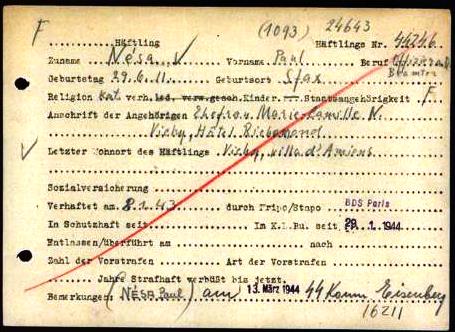 F (1093) 24643
Häftling Häftlings Nr. 44246
Zuname Nésa Vorname Paul Beruf Offizier u.
Beamter
Geburtstag 29.6.11. Geburtsort Sfax
Religion kat. verh. led. verw. gesch. Kinder Staatsangehörigkeit F
Anschrift der Angehörigen Ehefrau Marie-Camille N.
Vichy, Hôtel Richemond
Letzter Wohnort des Häftlings Vichy, villa d'Amiens
Sozialversicherung
Verhaftet am 8.1.43 durch Kripo/Stapo BDS Paris
In Schutzhaft seit Im K.L.Bu. seit 29. 1. 1944
Entlassen/überführt am nach
Zahl der Vorstrafen Art der Vorstrafen
Jahre Strafhaft verbüßt bis jetzt.
Bemerkungen: (Nésa Paul) am 13. März 1944 SS Komm. Eisenberg
16211